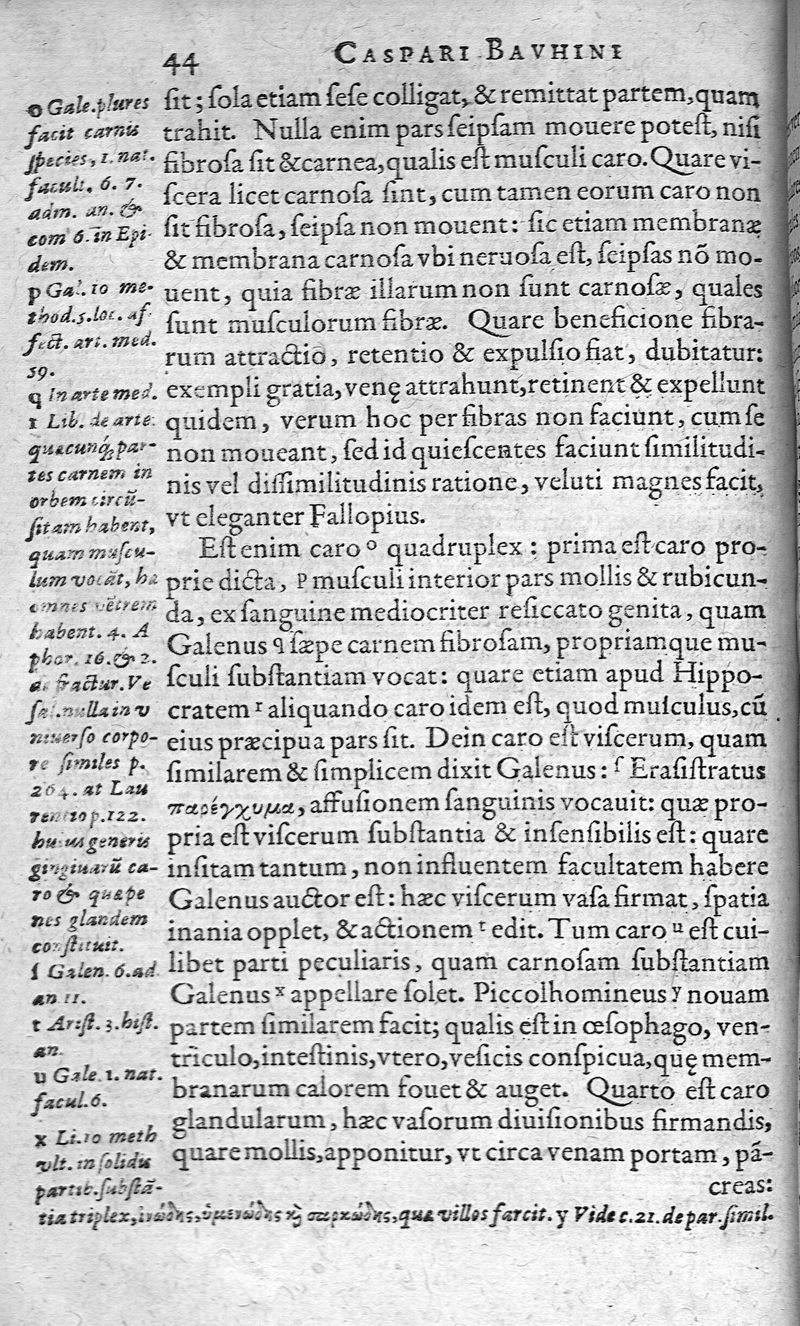 44
CASPARI BAVHINI
ſit; ſola etiam ſeſe colligat, & remittat partem, quam
trahit. Nulla enim pars ſeipſam mouere poteſt, niſi
fibroſa ſit & carnea, qualis eſt muſculi caro. Quare vi-
ſcera licet carnoſa ſint, cum tamen eorum caro non
ſit fibroſa, ſeipſa non mouent: ſic etiam membranæ
& membrana carnoſa vbi neruoſa eſt, ſeipſas nõ mo-
uent, quia fibræ illarum non ſunt carnoſæ, quales
ſunt muſculorum fibræ. Quare beneficione fibra-
rum attractio, retentio & expulſio fiat, dubitatur:
exempli gratia, venę attrahunt, retinent & expellunt
quidem, verum hoc per fibras non faciunt, cum ſe
non moueant, ſed id quieſcentes faciunt ſimilitudi-
nis vel diſſimilitudinis ratione, veluti magnes facit,
vt eleganter Fallopius.
Eſt enim caro o quadruplex: prima eſt caro pro-
prie dicta, p muſculi interior pars mollis & rubicun-
da, ex ſanguine mediocriter reſiccato genita, quam
Galenus q ſæpe carnem fibroſam, propriamque mu-
ſculi ſubſtantiam vocat: quare etiam apud Hippo-
cratem r aliquando caro idem eſt, quod muſculus, cũ
eius præcipua pars ſit. Dein caro eſt viſcerum, quam
ſimilarem & ſimplicem dixit Galenus: ſ Eraſiſtratus
παρέγχυμα, affuſionem ſanguinis vocauit: quæ pro-
pria eſt viſcerum ſubſtantia & inſenſibilis eſt: quare
inſitam tantum, non influentem facultatem habere
Galenus auctor eſt: hæc viſcerum vaſa firmat, ſpatia
inania opplet, & actionem t edit. Tum caro u eſt cui-
libet parti peculiaris, quam carnoſam ſubſtantiam
Galenus x appellare ſolet. Piccolhomineus y nouam
partem ſimilarem facit; qualis eſt in œſophago, ven-
triculo, inteſtinis, vtero, veſicis conſpicua, quę mem-
branarum calorem fouet & auget. Quarto eſt caro
glandularum, hæc vaſorum diuiſionibus firmandis,
quare mollis, apponitur, vt circa venam portam, pã-
creas:
o Gale. plures
facit carnis
ſpecies, 1. nat.
facult. 6. 7.
adm. an. &
com 6. in Epi-
dem.
p Gal. 10 me-
thod. 5. loc. af
fect. art. med.
39.
q In arte med.
r Lib. de arte
quæcunq; par-
tes carnem in
orbem circũ-
ſitam habent,
quam muſcu-
lum vocãt, hæ
omnes vẽtrem
habent. 4. A
phor. 16. & 2.
de fractur. Ve
ſal. nulla in v
niuerſo corpo-
re ſimiles p.
264. at Lau
rentio p. 122.
huius generis
gingiuarũ ca-
ro & quæ pe
nes glandem
conſtituit.
ſ Galen. 6. ad
an 11.
t Ariſt. 3. hiſt.
an.
u Gale. 1. nat.
facul. 6.
x Li. 10 meth
vlt. in ſolidis
partib. ſubſtã-
tia triplex, ἰνώδης, ὑμενώδης κỳ σαρκώδης, quæ villos farcit. y Vide c. 21. de par. ſimil.